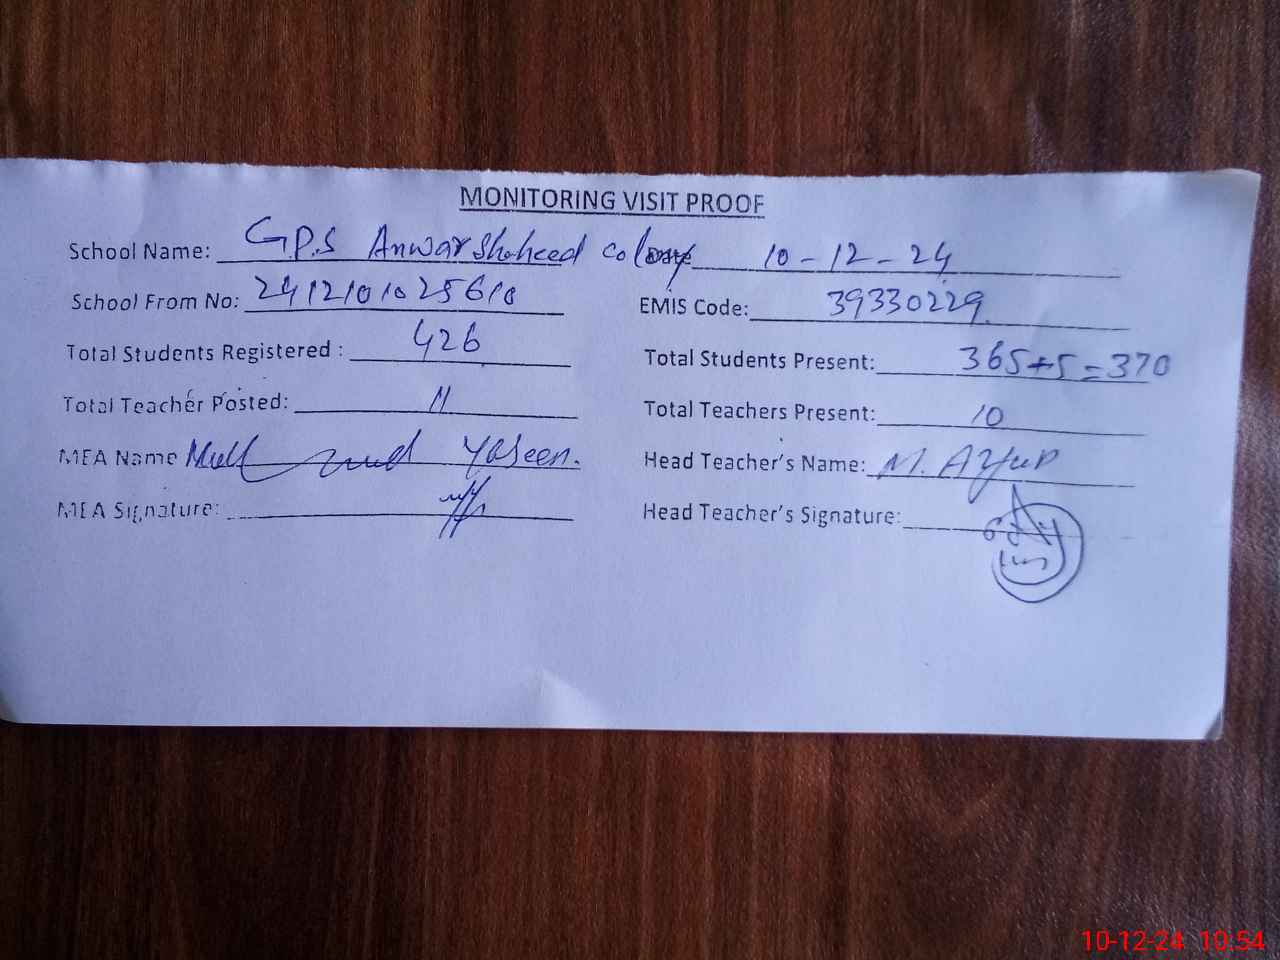 MONITORING VISIT PROOF
School Name: G.P.S Anwar Shaheed colony Date 10-12-24
School From No: 2412101025610 EMIS Code: 39330229
Total Students Registered : 426 Total Students Present: 365+5=370
Total Teacher Posted: 11 Total Teachers Present: 10
MEA Name Yaseen. Head Teacher's Name: M. Ayub
MEA Signature: Head Teacher's Signature:
10-12-24 10:54